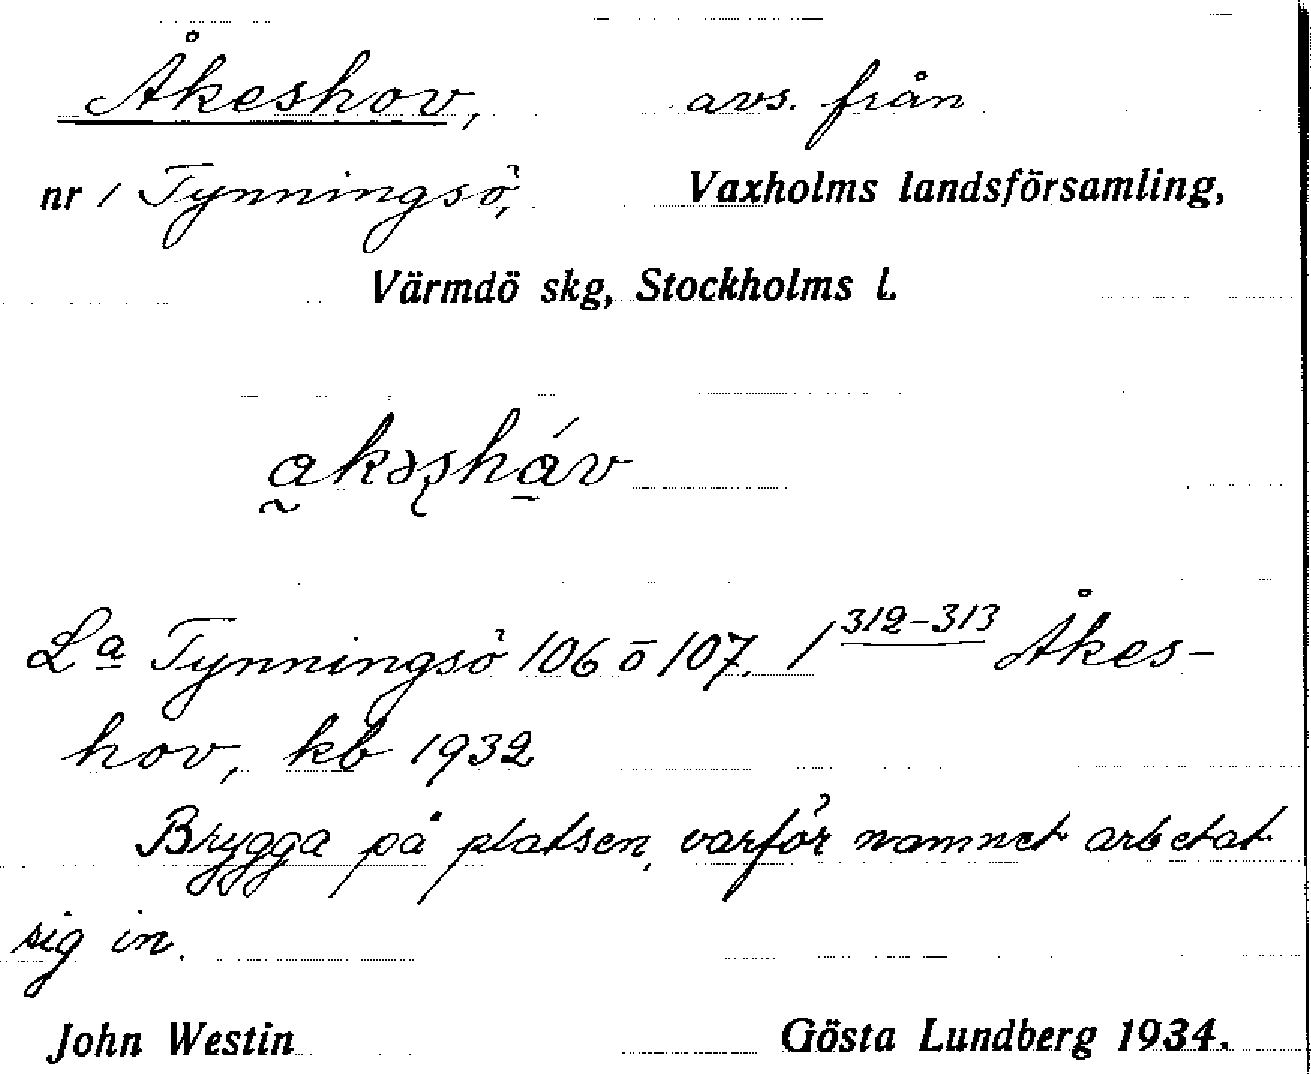 Åkeshov, avs. från
nr 1 Tynningsö, Vaxholms landsförsamling,
Värmdö skg, Stockholms l.
La Tynningsö 106 o 107. 1 312-313 Åkes-
hov, kb 1932
Brygga på platsen, varför namnet arbetat
sig in.
John Westin Gösta Lundberg 1934.